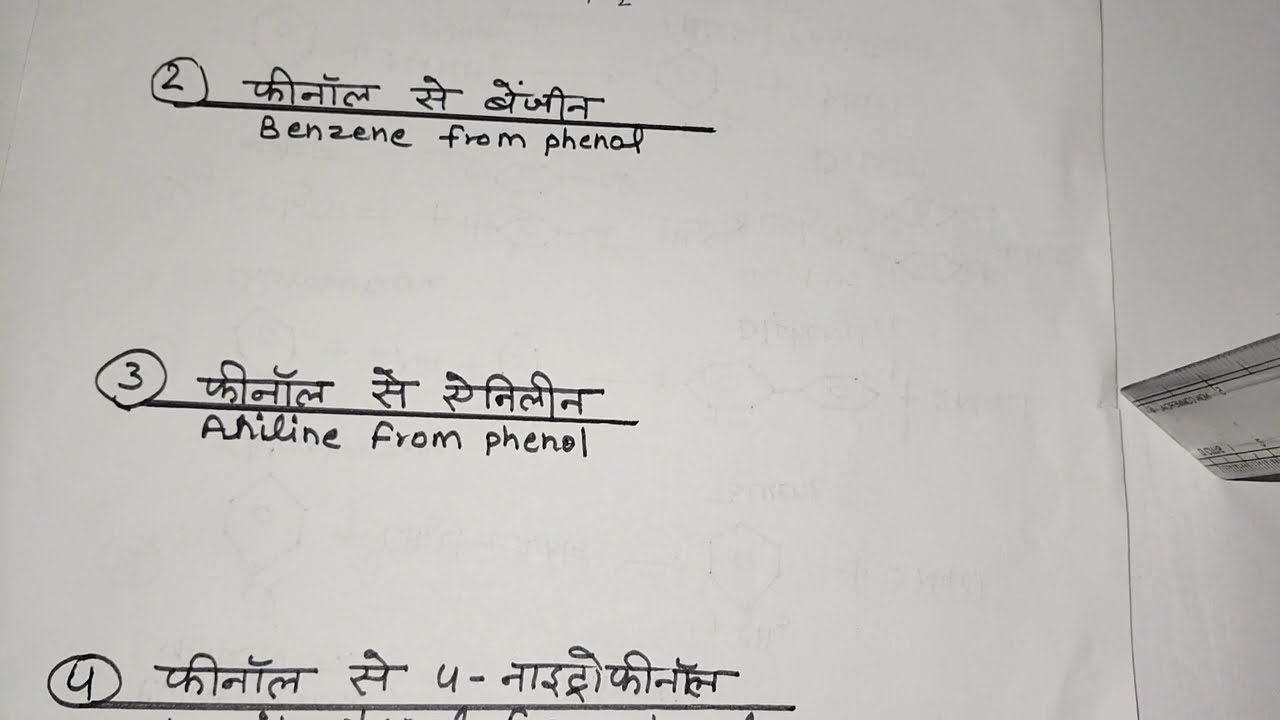 ② फीनॉल से बेंजीन
Benzene from phenol
③ फीनॉल से ऐनिलीन
Aniline from phenol
④ फीनॉल से 4-नाइट्रोफीनॉल